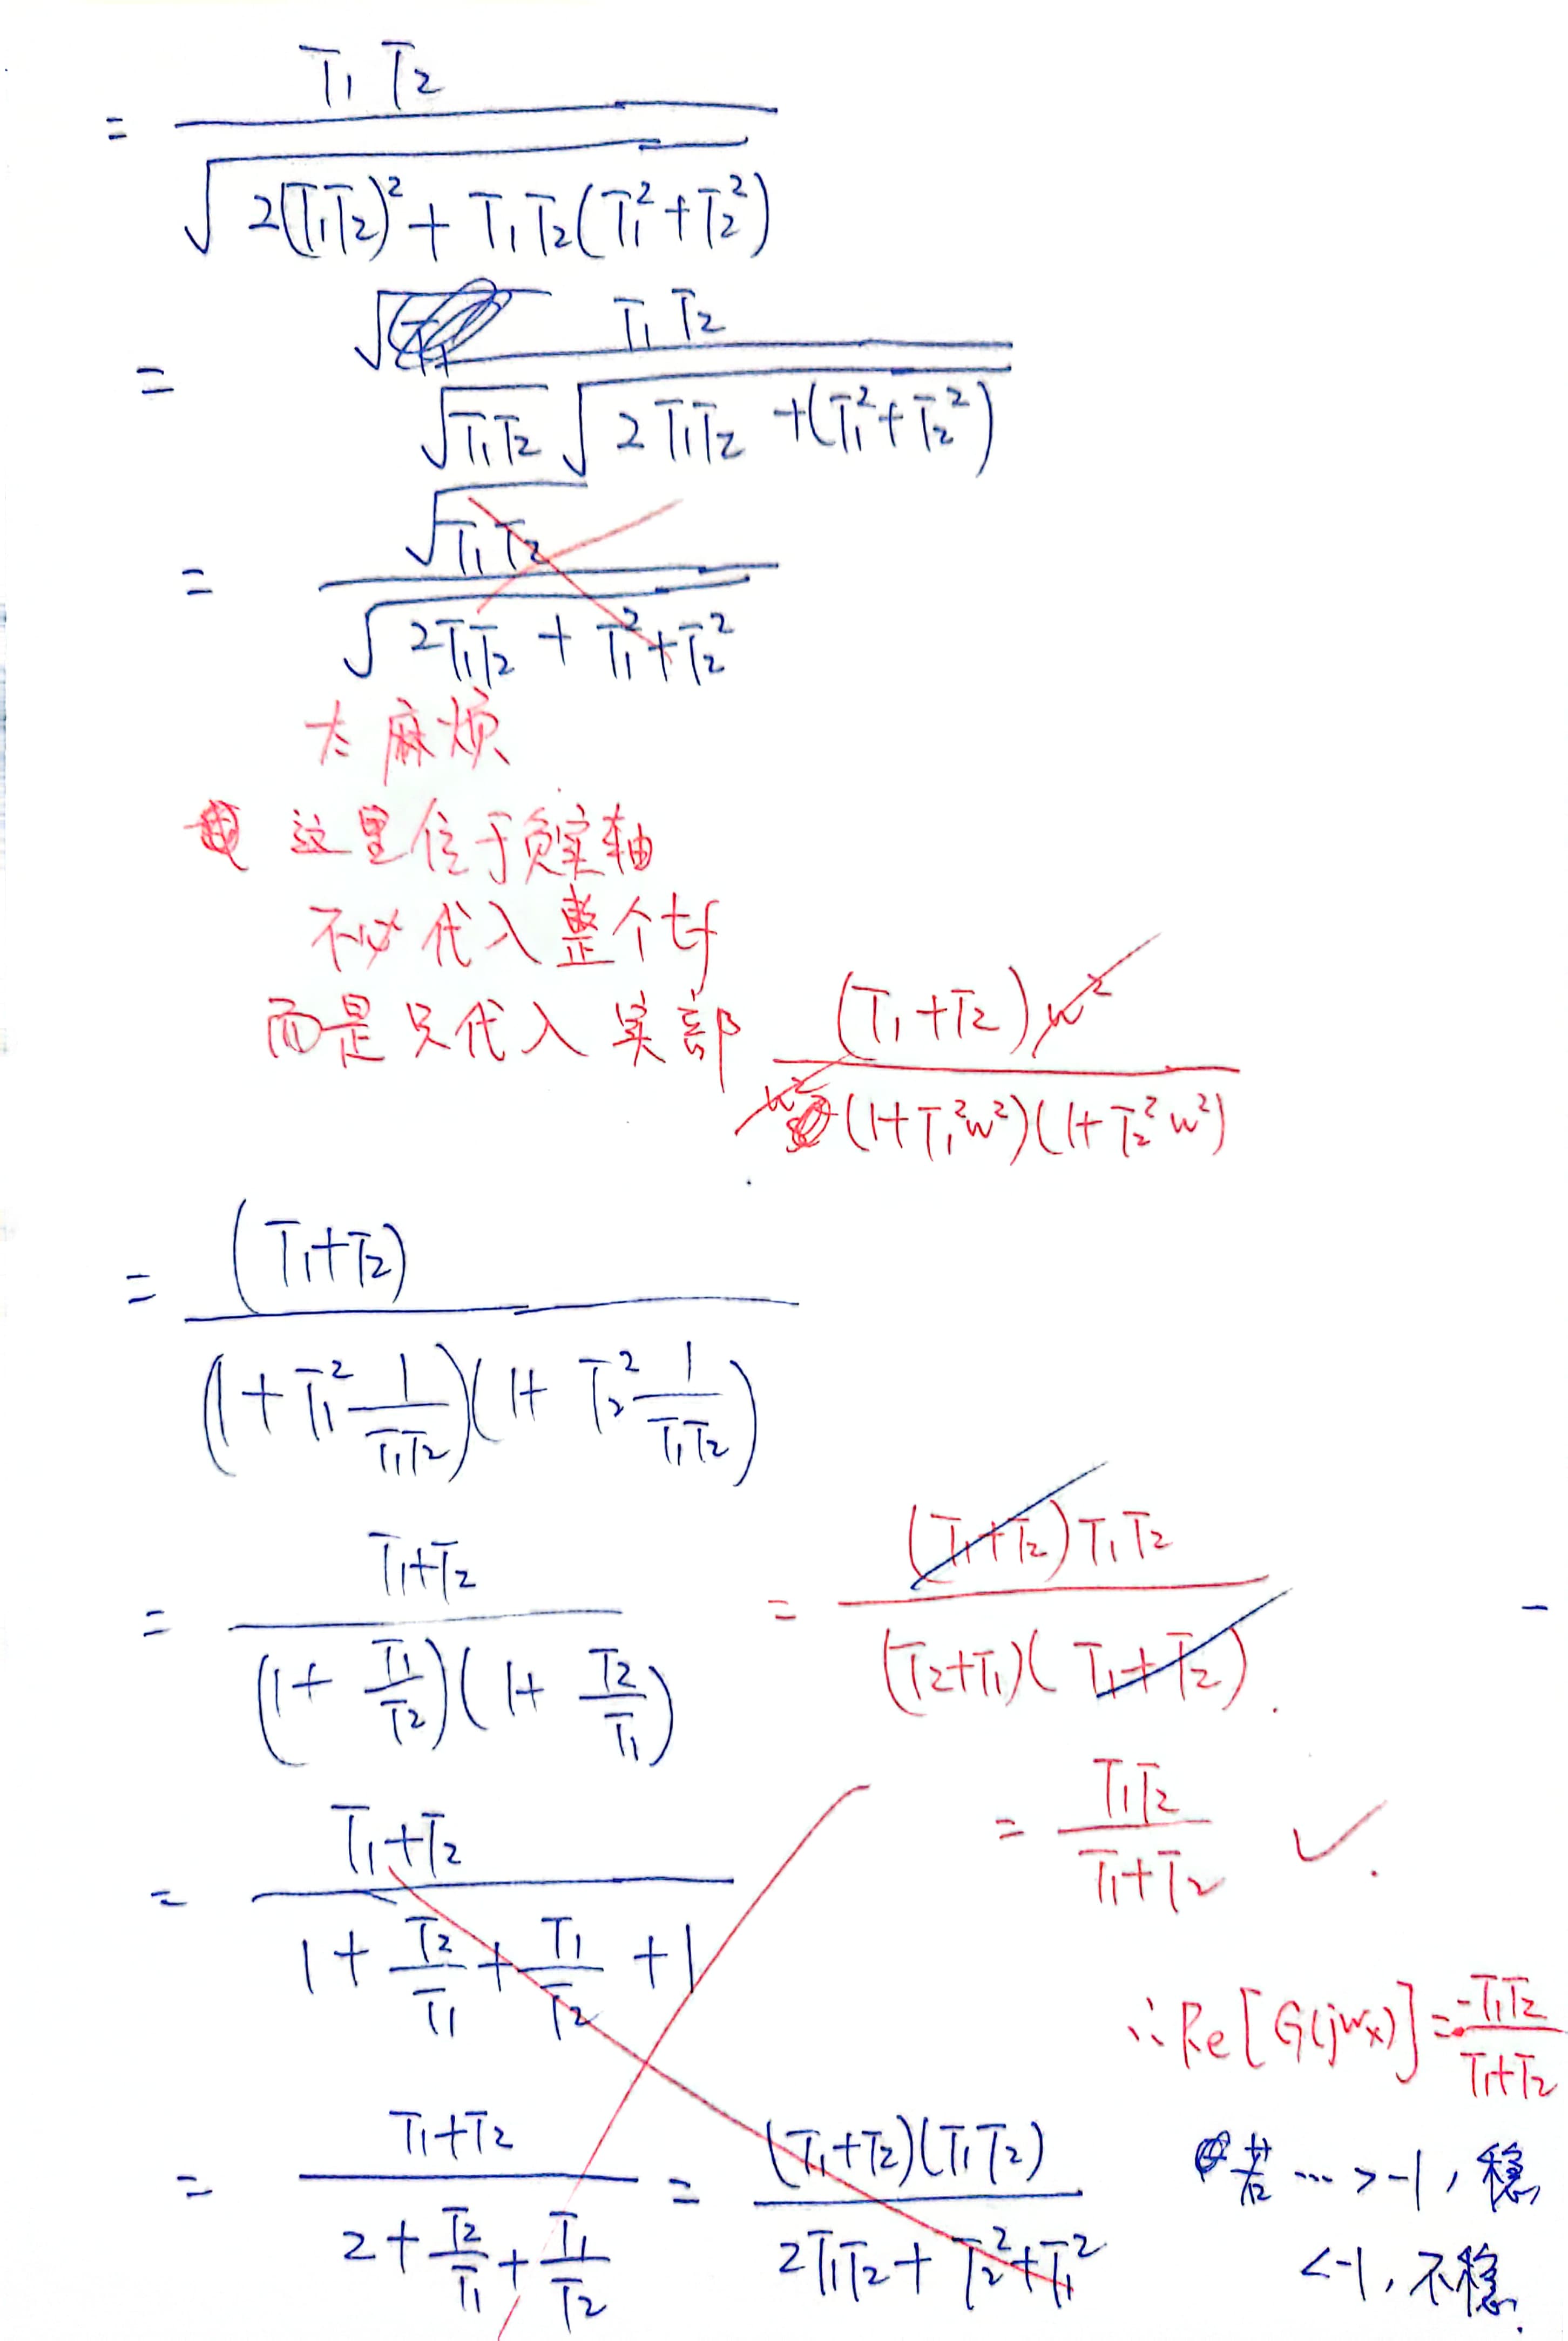 = T₁T₂ / √(2(T₁T₂)² + T₁T₂(T₁²+T₂²))
= T₁T₂ / (√(T₁T₂) √(2T₁T₂ + (T₁²+T₂²)))
= √(T₁T₂) / √(2T₁T₂ + T₁²+T₂²)
太麻烦
这里位于负实轴
不必代入整个tf
而是只代入实部 (T₁+T₂)w² / (w²(1+T₁²w²)(1+T₂²w²))
= (T₁+T₂) / ((1+T₁² 1/(T₁T₂))(1+T₂² 1/(T₁T₂)))
= T₁+T₂ / ((1+T₁/T₂)(1+T₂/T₁)) = (T₁+T₂)T₁T₂ / ((T₂+T₁)(T₁+T₂)) -
= T₁T₂ / (T₁+T₂) ✓
= T₁+T₂ / (1+T₂/T₁+T₁/T₂+1)
∴Re[G(jwₓ)]= -T₁T₂ / (T₁+T₂)
= T₁+T₂ / (2+T₂/T₁+T₁/T₂) = (T₁+T₂)(T₁T₂) / (2T₁T₂+T₂²+T₁²)
若 … >-1, 稳
<-1, 不稳.